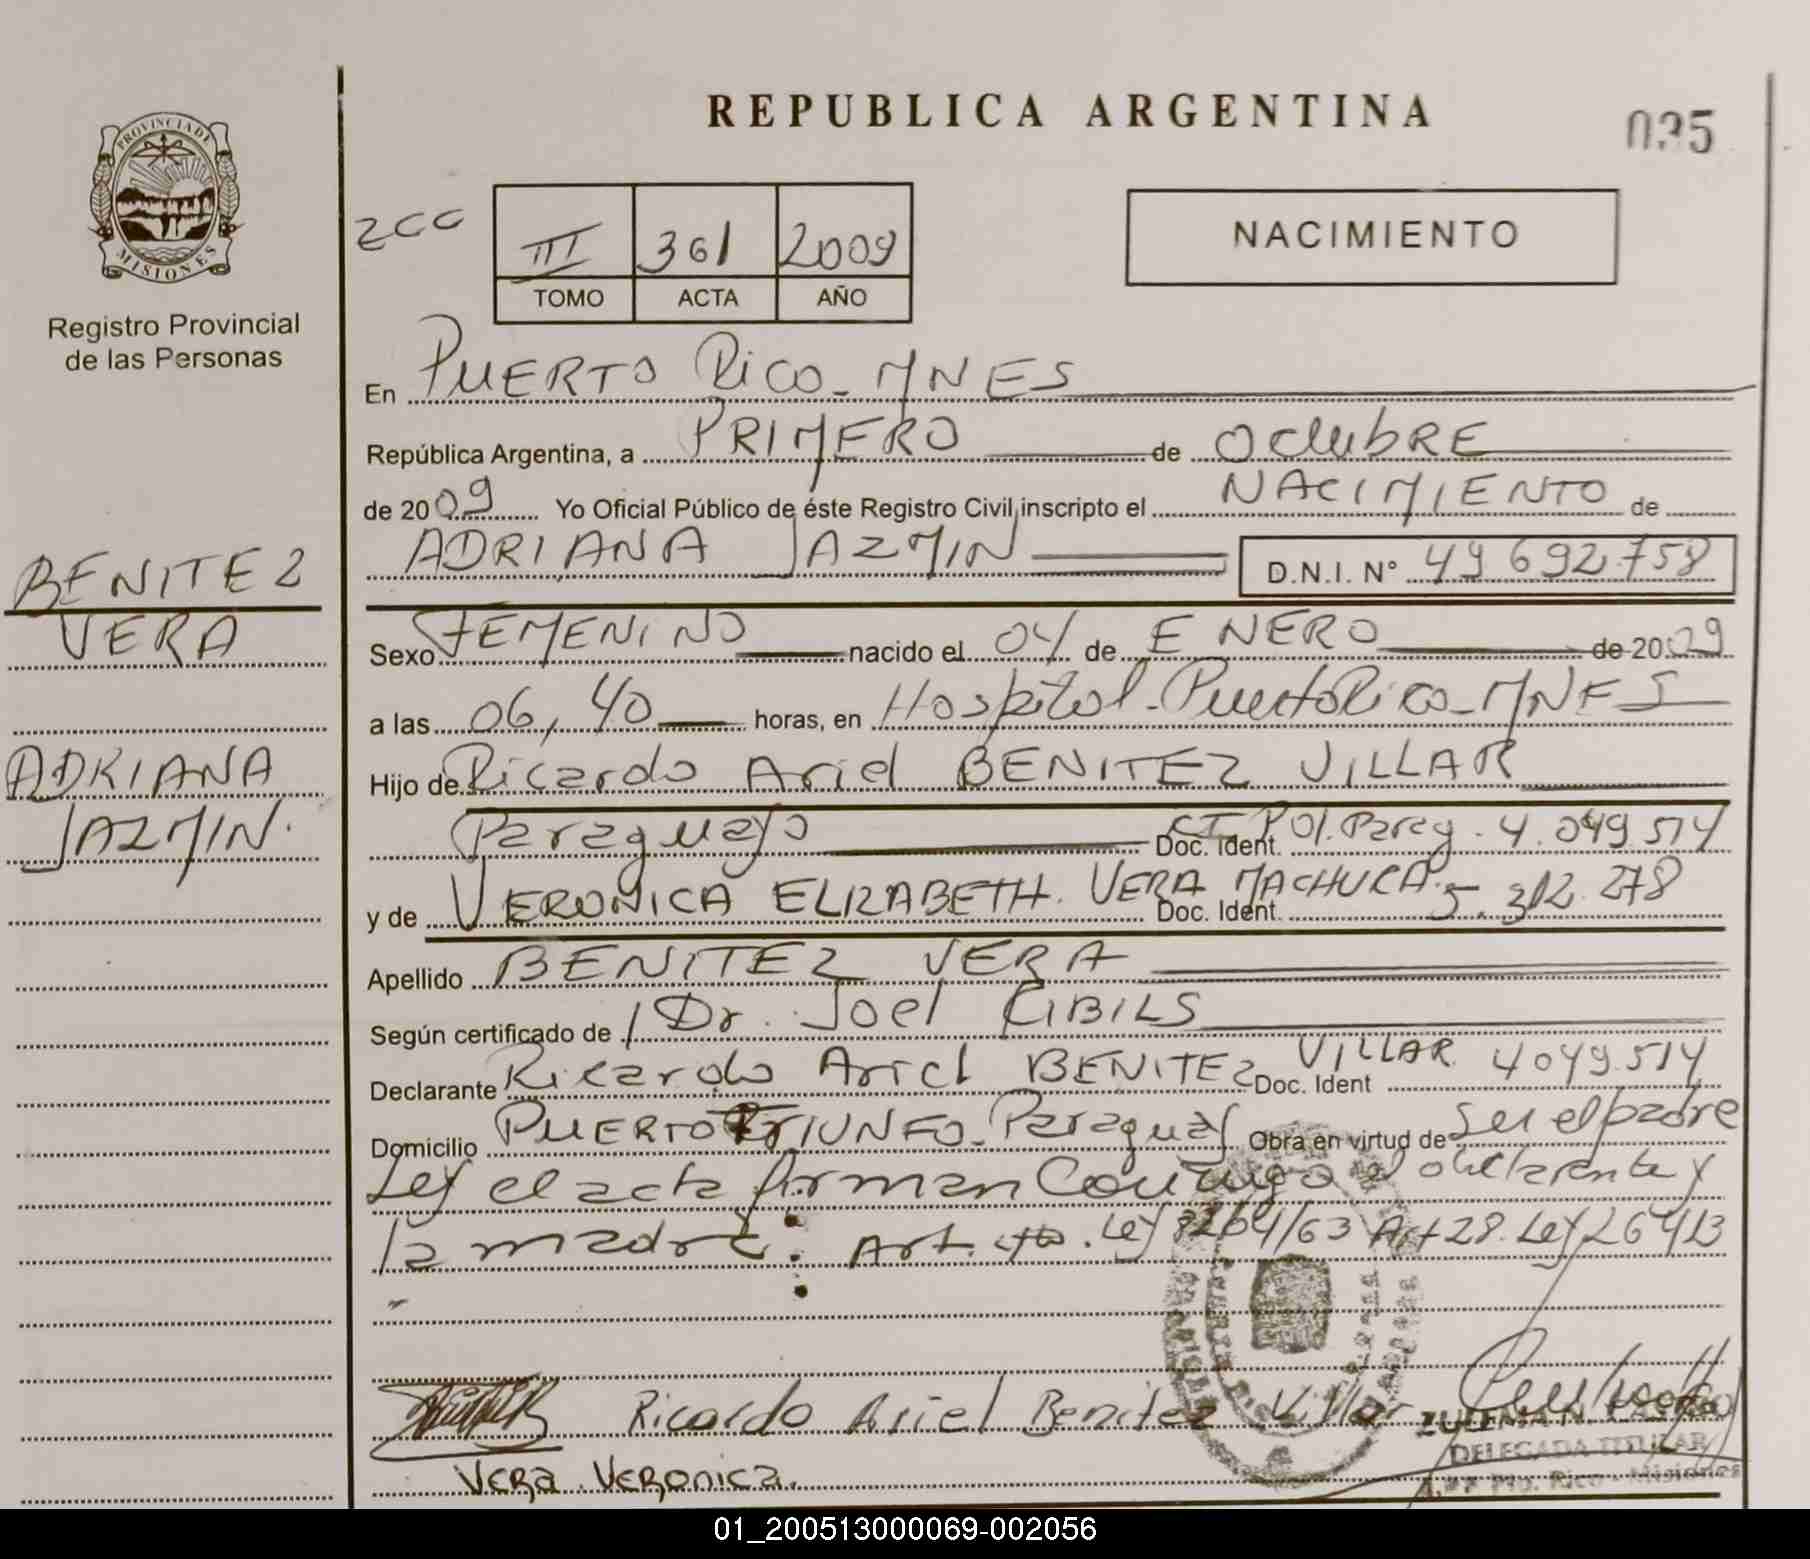 REPUBLICA ARGENTINA
035
PROVINCIA DE
MISIONES
Registro Provincial
de las Personas
200
III 361 2009
TOMO ACTA AÑO
NACIMIENTO
En PUERTO RICO - MNES
República Argentina, a PRIMERO de OctubRE
de 2009 Yo Oficial Público de éste Registro Civil, inscripto el NACIMIENTO de
ADRIANA JAZMIN D.N.I. N° 49 692.758
BENITEZ
VERA
ADRIANA
JAZMIN.
Sexo FEMENINO nacido el 04 de ENERO de 2009
a las 06,40 horas, en Hospital - Puerto Rico - MNES
Hijo de Ricardo Ariel BENITEZ VILLAR
Paraguayo Doc. Ident. CI Pol. Parag. 4.049.514
y de VERONICA ELIZABETH. VERA MACHUCA. Doc. Ident. 5.312.278
Apellido BENITEZ VERA
Según certificado de Dr. Joel CIBILS
Declarante Ricardo Ariel BENITEZ VILLAR Doc. Ident 4049.514
Domicilio PUERTO TRIUNFO - Paraguay Obra en virtud de Ser el padre
Ley el acta firman Conmigo el declarante y
la madre. Art. Ley 8204/63 Art 28. Ley 26413
Ricardo Ariel Benitez Villar
VERA VERONICA.
ZULEMA N.
DELEGADA TITULAR
Pto. Rico - Misiones
01_200513000069-002056